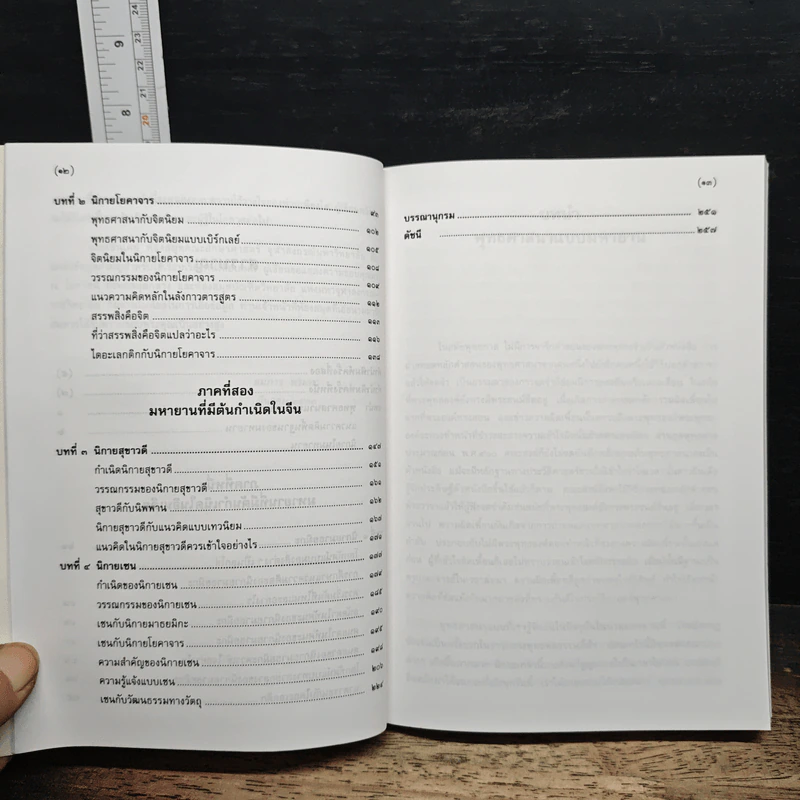 9
8
24
23
22
21
20
(๑๒)
บทที่ ๒ นิกายโยคาจาร ๙๐
พุทธศาสนากับจิตนิยม ๑๐๒
พุทธศาสนากับจิตนิยมแบบเบิร์กเลย์ ๑๐๕
จิตนิยมในนิกายโยคาจาร ๑๐๘
วรรณกรรมของนิกายโยคาจาร ๑๐๙
แนวความคิดหลักในลังกาวตารสูตร ๑๑๒
สรรพสิ่งคือจิต ๑๑๓
ที่ว่าสรรพสิ่งคือจิตแปลว่าอะไร ๑๑๖
ไดอะเลกติกกับนิกายโยคาจาร ๑๓๘
ภาคที่สอง
มหายานที่มีต้นกำเนิดในจีน
บทที่ ๓ นิกายสุขาวดี ๑๔๘
กำเนิดนิกายสุขาวดี ๑๕๑
วรรณกรรมของนิกายสุขาวดี ๑๖๑
สุขาวดีกับนิพพาน ๑๖๒
นิกายสุขาวดีกับแนวคิดแบบเทวนิยม ๑๖๗
แนวคิดในนิกายสุขาวดีควรเข้าใจอย่างไร
บทที่ ๔ นิกายเซน ๑๗๗
กำเนิดของนิกายเซน ๑๗๙
วรรณกรรมของนิกายเซน ๑๘๕
เซนกับนิกายมาธยมิกะ ๑๙๐
เซนกับนิกายโยคาจาร ๑๙๕
ความสำคัญของนิกายเซน ๑๙๘
ความรู้แจ้งแบบเซน ๒๐๖
เซนกับวัฒนธรรมทางวัตถุ ๒๒๔
(๑๓)
บรรณานุกรม ๒๕๑
ดัชนี ๒๕๗